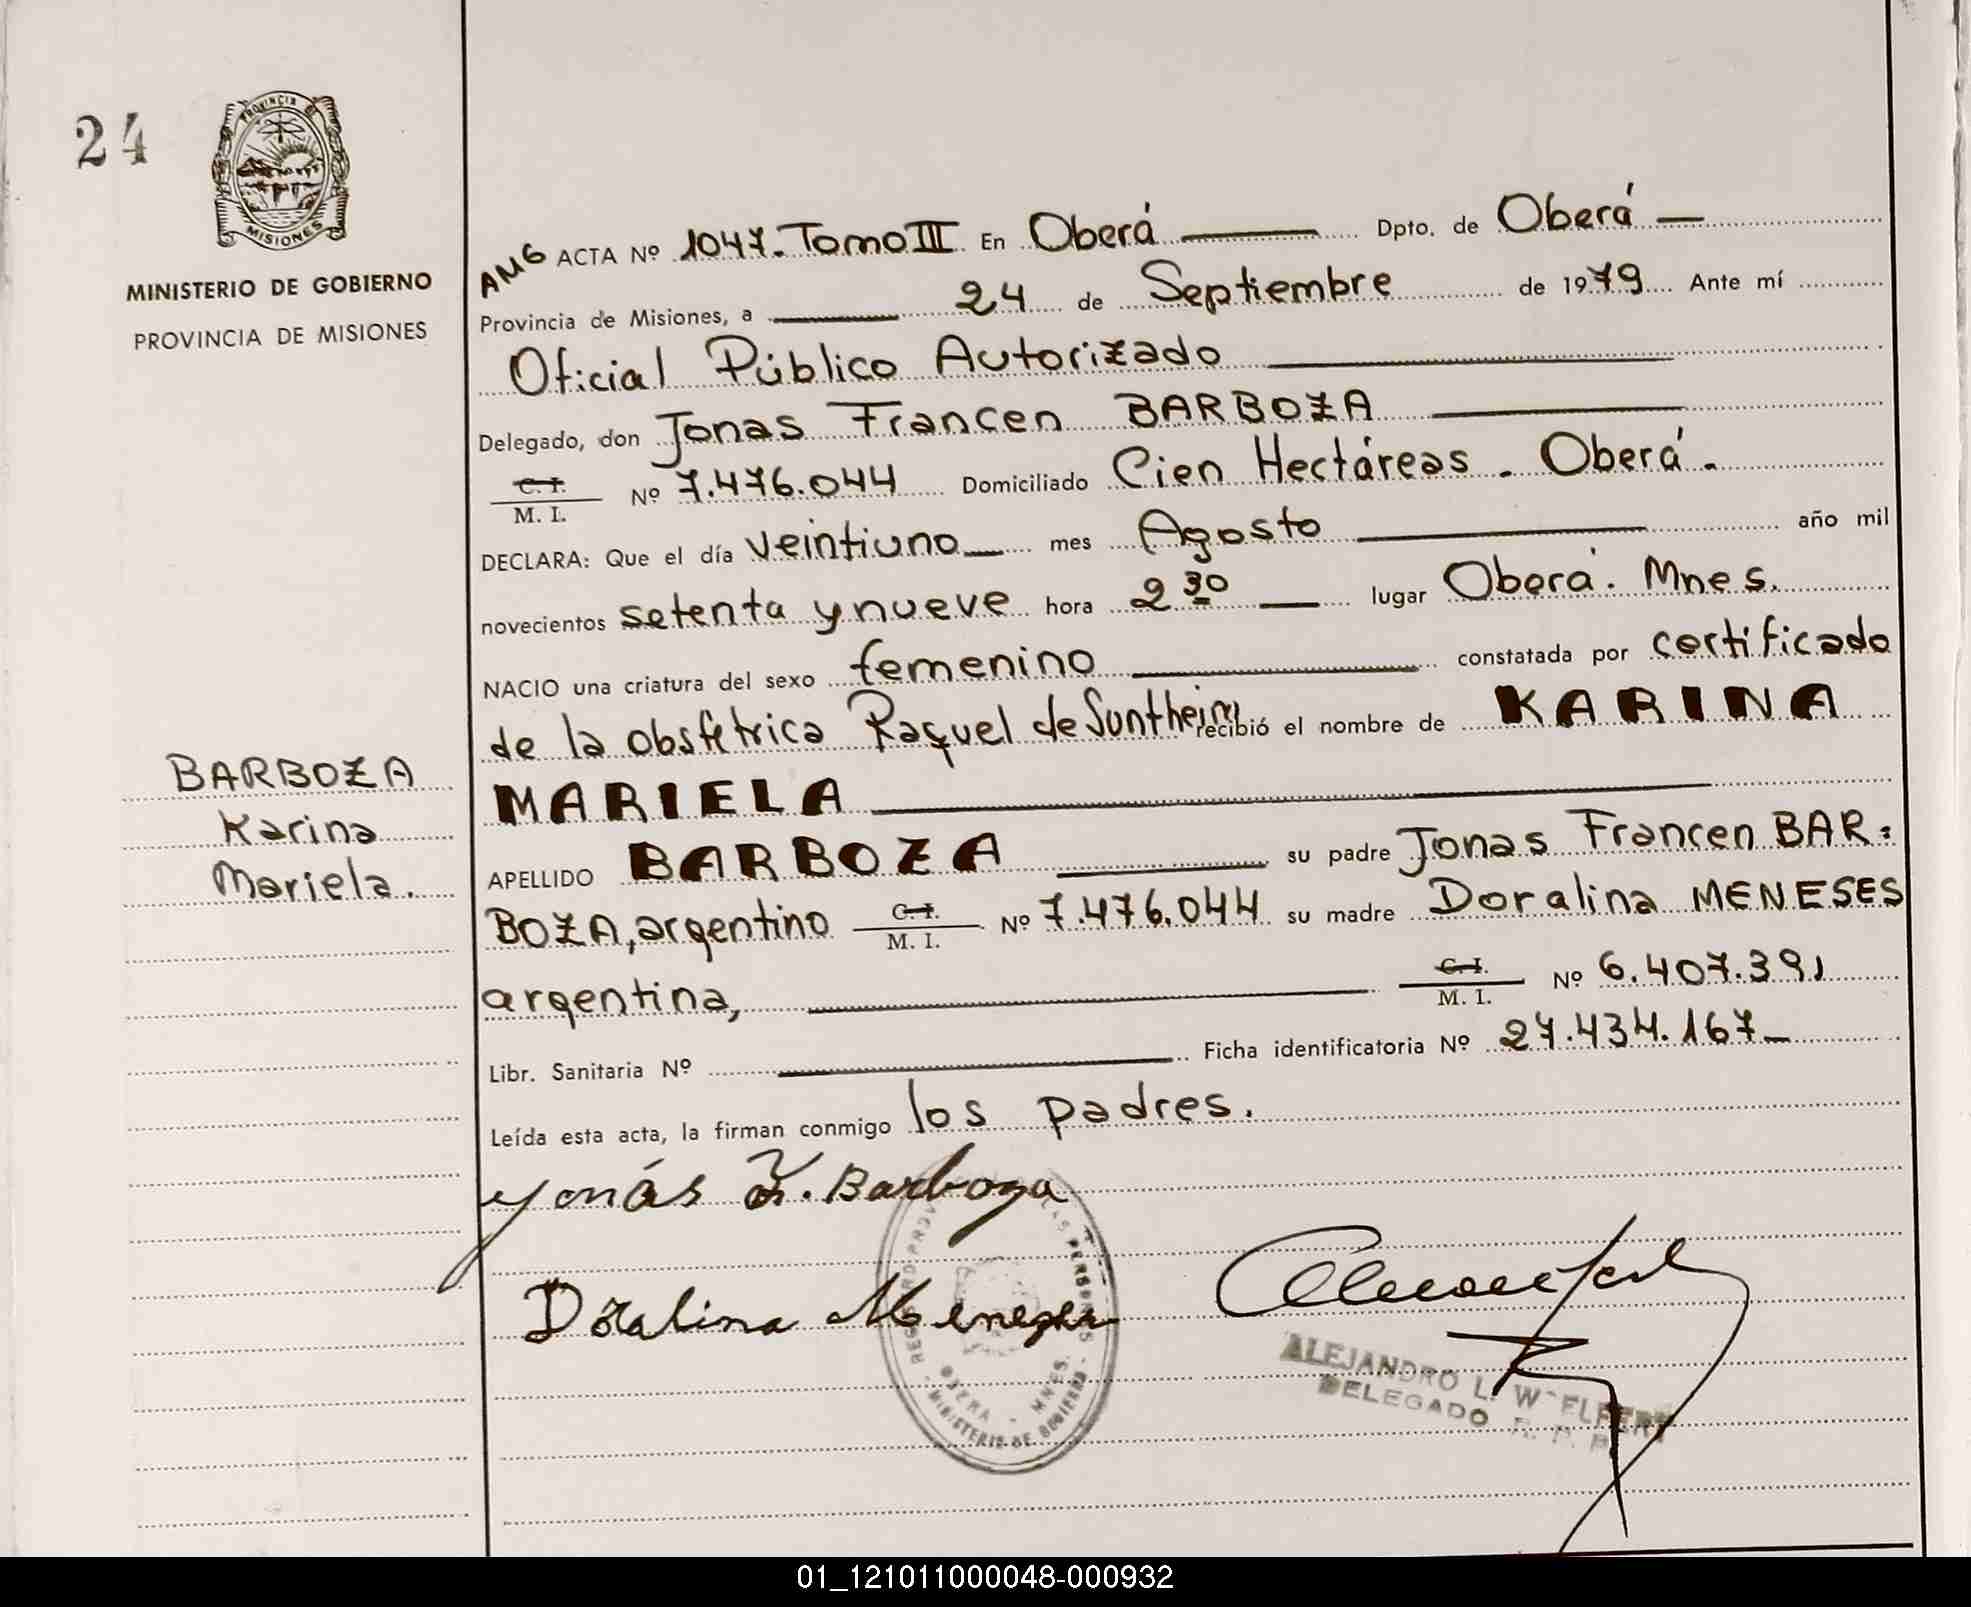 24
PROVINCIA DE
MISIONES
MINISTERIO DE GOBIERNO
PROVINCIA DE MISIONES
AMG ACTA Nº 1047. Tomo III En Oberá Dpto. de Oberá
Provincia de Misiones, a 24 de Septiembre de 1979 Ante mí
Oficial Público Autorizado
Delegado, don Jonas Francen BARBOZA
C. I.
M. I. Nº 7.476.044 Domiciliado Cien Hectáreas. Oberá.
DECLARA: Que el día veintiuno mes Agosto año mil
novecientos setenta y nueve hora 2 30 lugar Oberá. Mnes.
NACIO una criatura del sexo femenino constatada por certificado
de la obstétrica Raquel de recibió el nombre de KARINA
MARIELA
APELLIDO BARBOZA su padre Jonas Francen BAR=
BOZA, argentino C. I. M. I. Nº 7.476.044 su madre Doralina MENESES
argentina, C. I. M. I. Nº 6.407.391
Libr. Sanitaria Nº Ficha identificatoria Nº 27.434.167
Leída esta acta, la firman conmigo los padres.
BARBOZA
Karina
Mariela.
Jonás F. Barboza
Doralina
REGISTRO PROV PERSONAS
OBERA - MNES.
- MINISTERIO DE GOBIERNO -
ALEJANDRO L.
DELEGADO
01_121011000048-000932